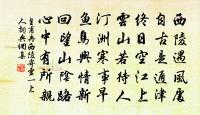 西陵遇風處
自古是通津
終日空江上
雲山若待人
汀洲寒事早
魚鳥興情新
回望山陰路
心中有所親
皇甫冉西陵寄靈一上
人詞奧網集